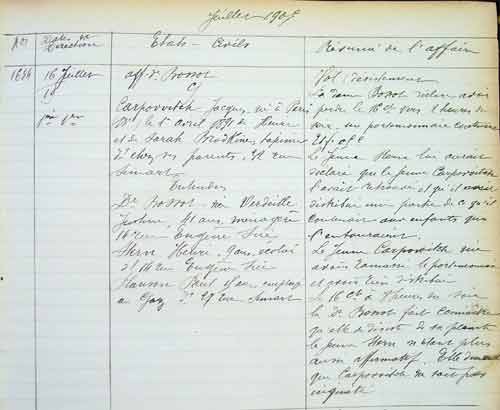 Juillet 1905
Nos
Dates et Direction
Etats - Civils
Résumé de l'affaire
1644
16 Juillet
affre Bossot
c/
Carpovitch Jacques, né à Paris
le 1er avril 1891 de Henri
et de Sarah Brodkine, tapissier
Dt chez ses parents, rue
Simart
Entendus
De Bossot née Verdeille
41 ans, ménagère
16 rue Eugène Sue
Stern Henri, 9 ans, écolier
Dt 16 rue Eugène Sue
Paul, employé
au Gaz Dt 27 rue Simart
Vol
La dame Bossot avoir
perdu le 16 ct vers heures du
soir, un portemonnaie contenant
Le jeune Stern lui aurait
déclaré que le jeune Carpovitch
l'avait retrouvé et qu'il avait
distribué une partie de ce qu'il
contenait aux enfants qui
l'entouraient.
Le jeune Carpovitch nie
avoir ramassé le portemonnaie
et avoir rien distribué
Le 16 ct à heures du soir
la De Bossot fait connaître
qu'elle se désiste de sa plainte
le jeune Stern n'étant plus
aussi affirmatif. Elle demande
que Carpovitch ne soit pas
inquiété